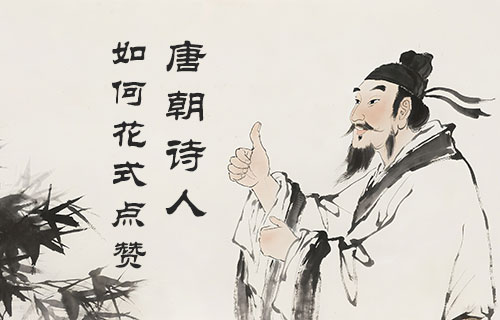 唐朝诗人
如何花式点赞